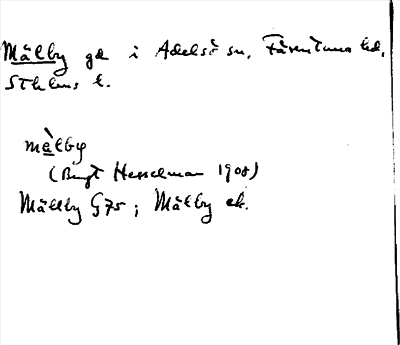 Mälby gd i Adelsö sn, Färentuna hd,
Sthlms l.
mä̀lby
(Bengt Hesselman 1908)
Mällby G75; Mälby ek.